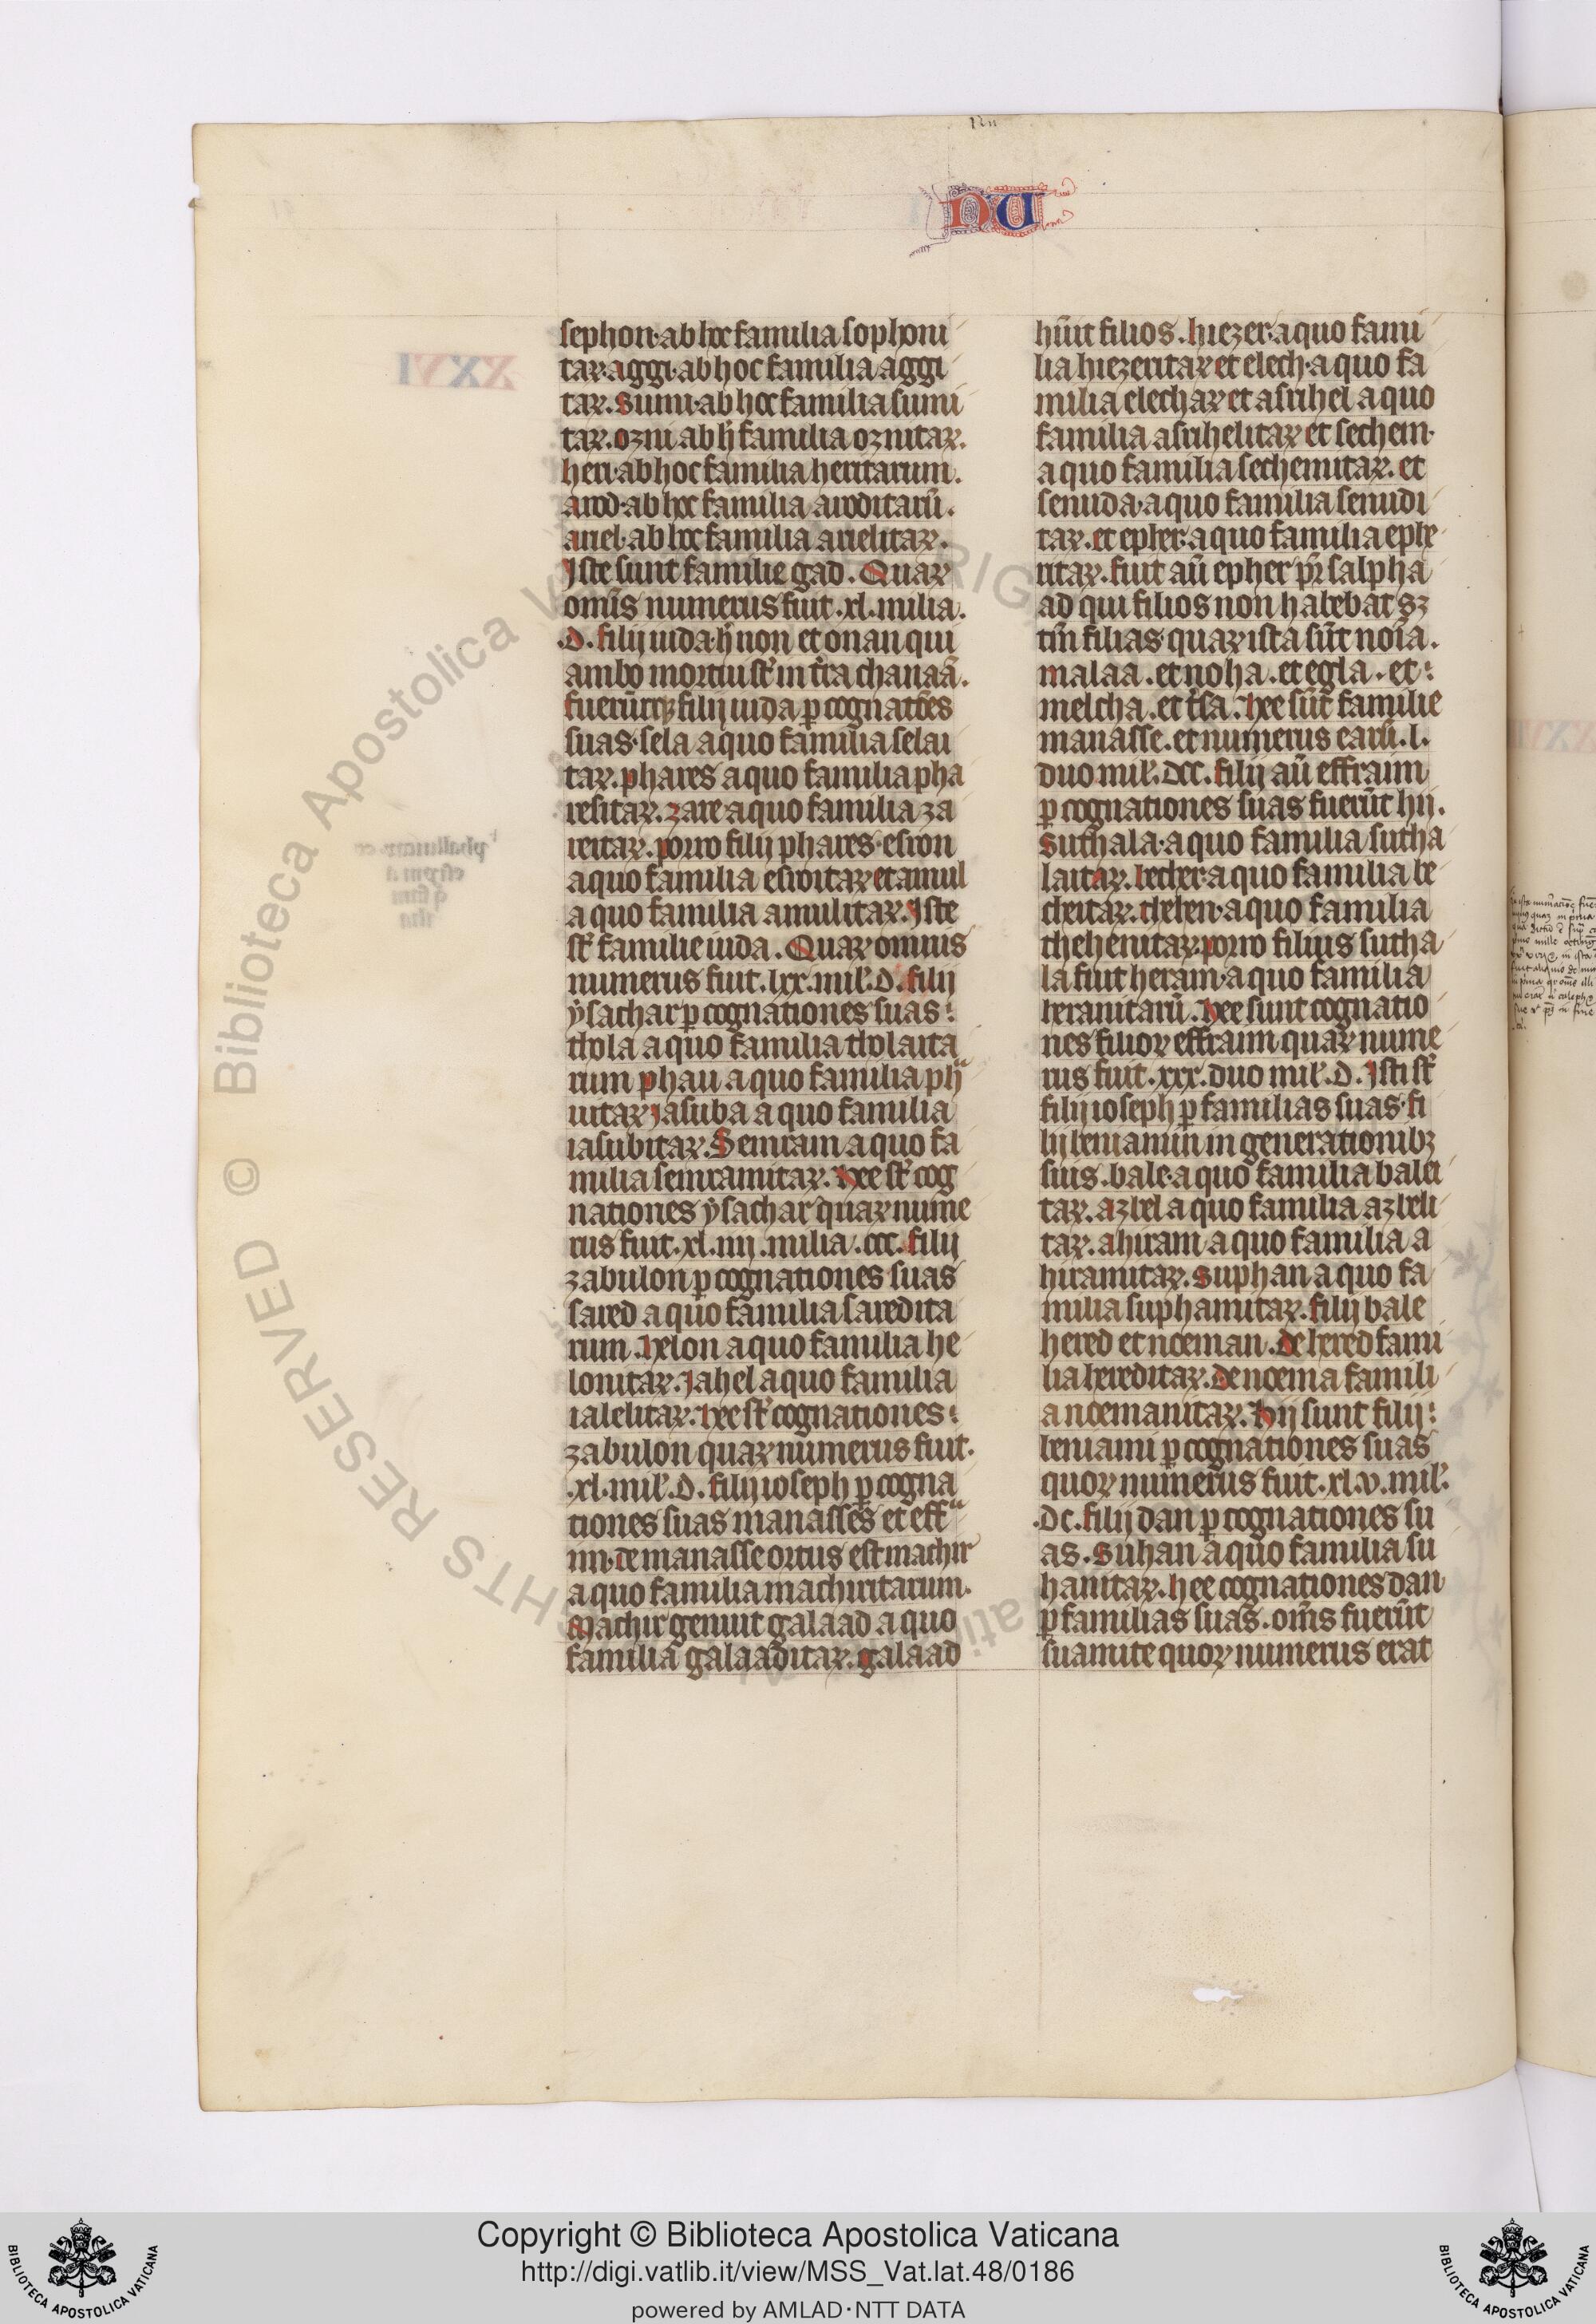 NU
sephon·ab hoc familia sophoni
taꝝ·aggi·ab hoc familia aggi
taꝝ. Suni·ab hoc familia suni
taꝝ. ozni ab h̄ familia oznitaꝝ.
heri·ab hoc familia heritarum.
arod·ab hoc familia aroditarū.
ariel·ab hoc familia arielitaꝝ.
Iste sunt familie gad. Quaꝝ
om̄s numerus fuit .xl. milia.
.D. filij iuda·h̄ non et onan qui
ambo mortui st̄ in t̄ra chanaā.
fuerūtqꝫ filij iuda ꝑ cognatōes
suas·sela a quo familia selai
taꝝ. phares a quo familia pha
resitaꝝ. zare a quo familia za
reitaꝝ. porro filij phares·esron
a quo familia esroitaꝝ et amul
a quo familia amulitaꝝ. Iste
st̄ familie iuda. Quaꝝ omnis
numerus fuit .lxx. mil̄. D. filij
ysachar ꝑ cognationes suas:
thola a quo familia tholaita
rum phau a quo familia phᵃ
uitaꝝ iasuba a quo familia
iasubitaꝝ. Semram a quo fa
milia semramitaꝝ. Hee st̄ cog
nationes ysachar quaꝝ nume
rus fuit .xl.iiij. milia .ccc. filij
zabulon ꝑ cognationes suas
sared a quo familia saredita
rum. Helon a quo familia he
lonitaꝝ. Iahel a quo familia
ialelitaꝝ. Hee st̄ cognationes:
zabulon quaꝝ numerus fuit.
.xl. mil̄. D. filij ioseph ꝑ cogna
tiones suas manasses et effᵃ
im·de manasse ortus est machir
a quo familia machiritarum.
Machir genuit galaad a quo
familia galaaditaꝝ. galaad
hūit filios. hiezer·a quo fami
lia hiezeritaꝝ et elech·a quo fa
milia elechaꝝ et asrihel a quo
familia asrihelitaꝝ et sechem·
a quo familia sechemitaꝝ. et
semida·a quo familia semidi
taꝝ. et epher·a quo familia ephe
ritaꝝ. fuit aū epher pr̄ salpha
ad qui filios non habebat sꝫ
tm̄ filias quaꝝ ista sūt noīa.
malaa. et noha. et egla. et:
melcha. et t̄sa. Hee sūt familie
manasse. et numerus earū .l.
duo mil̄. Dcc. filij aū effraim
ꝑ cognationes suas fuerūt hij.
Suthala·a quo familia sutha
laitaꝝ. becher·a quo familia be
cheitaꝝ. thehen·a quo familia
thehenitaꝝ. porro filius sutha
la fuit heram·a quo familia
heranitarū. Hee sunt cognatio
nes filioꝝ effraim quaꝝ nume
rus fuit .xxx. duo mil̄. D. Isti st̄
filij ioseph ꝑ familias suas·fi
lij beniamin in generationibꝫ
suis. bale·a quo familia balei
taꝝ. azbel a quo familia azbeli
taꝝ. ahiram a quo familia a
hiramitaꝝ. suphan a quo fa
milia suphamitaꝝ. filij bale
hered et noeman. de hered fami
lia hereditaꝝ. de noema famili
a noemanitaꝝ. Hij sunt filij:
beniami ꝑ cognationes suas
quoꝝ numerus fuit .xl.v. mil̄.
.Dc. filij dan ꝑ cognationes su
as. Suhan a quo familia su
hanitaꝝ. hee cognationes dan
ꝑ familias suas. om̄s fuerūt
suamite quoꝝ numerus erat
Copyright © Biblioteca Apostolica Vaticana
http://digi.vatlib.it/view/MSS_Vat.lat.48/0186
powered by AMLAD·NTT DATA